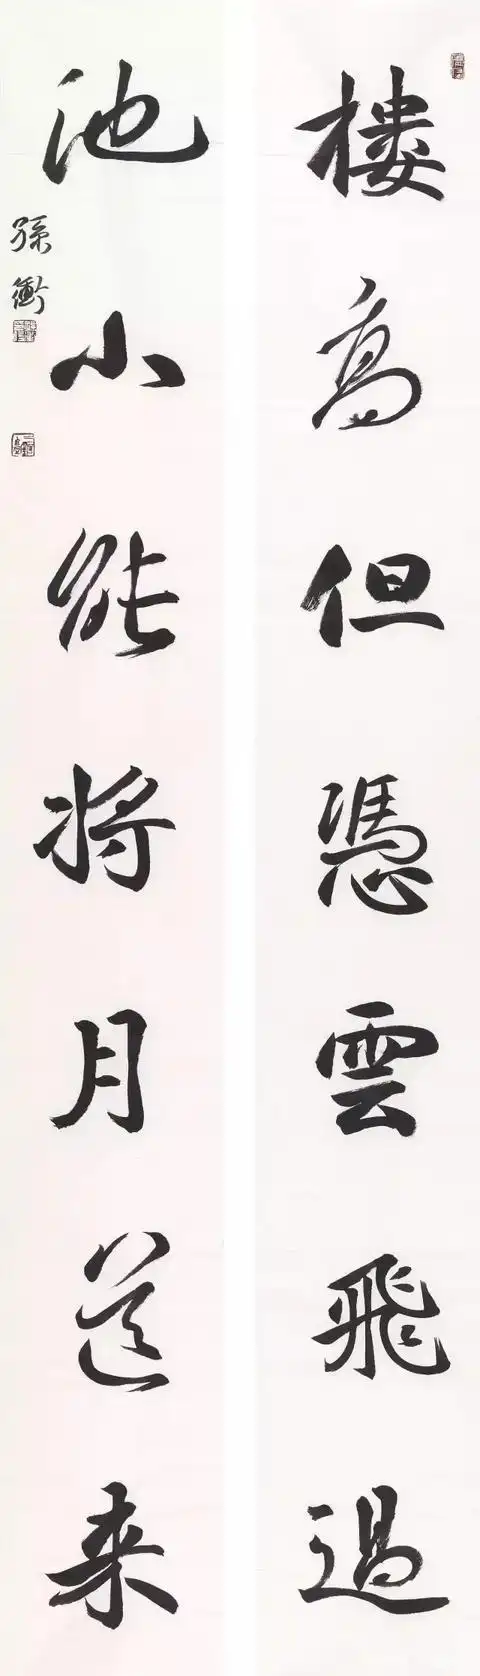 楼高但憑雲飛過
池小能將月送来
孫衡